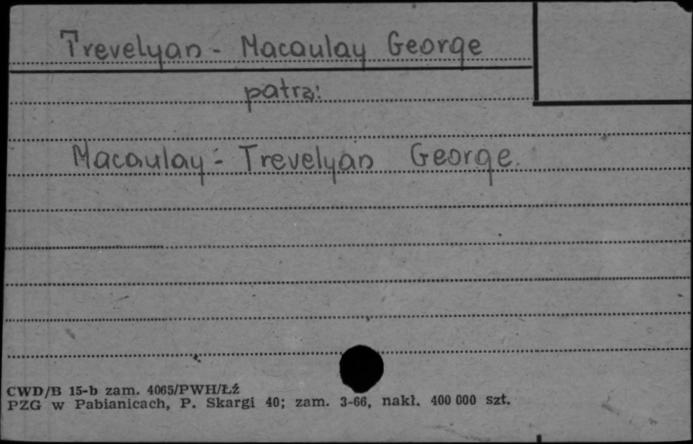 Trevelyan - Macaulay George
patrz:
Macaulay - Trevelyan George.
CWD/B 15-b zam. 4065/PWH/ŁŹ
PZG w Pabianicach, P. Skargi 40; zam. 3-66, nakł. 400 000 szt.